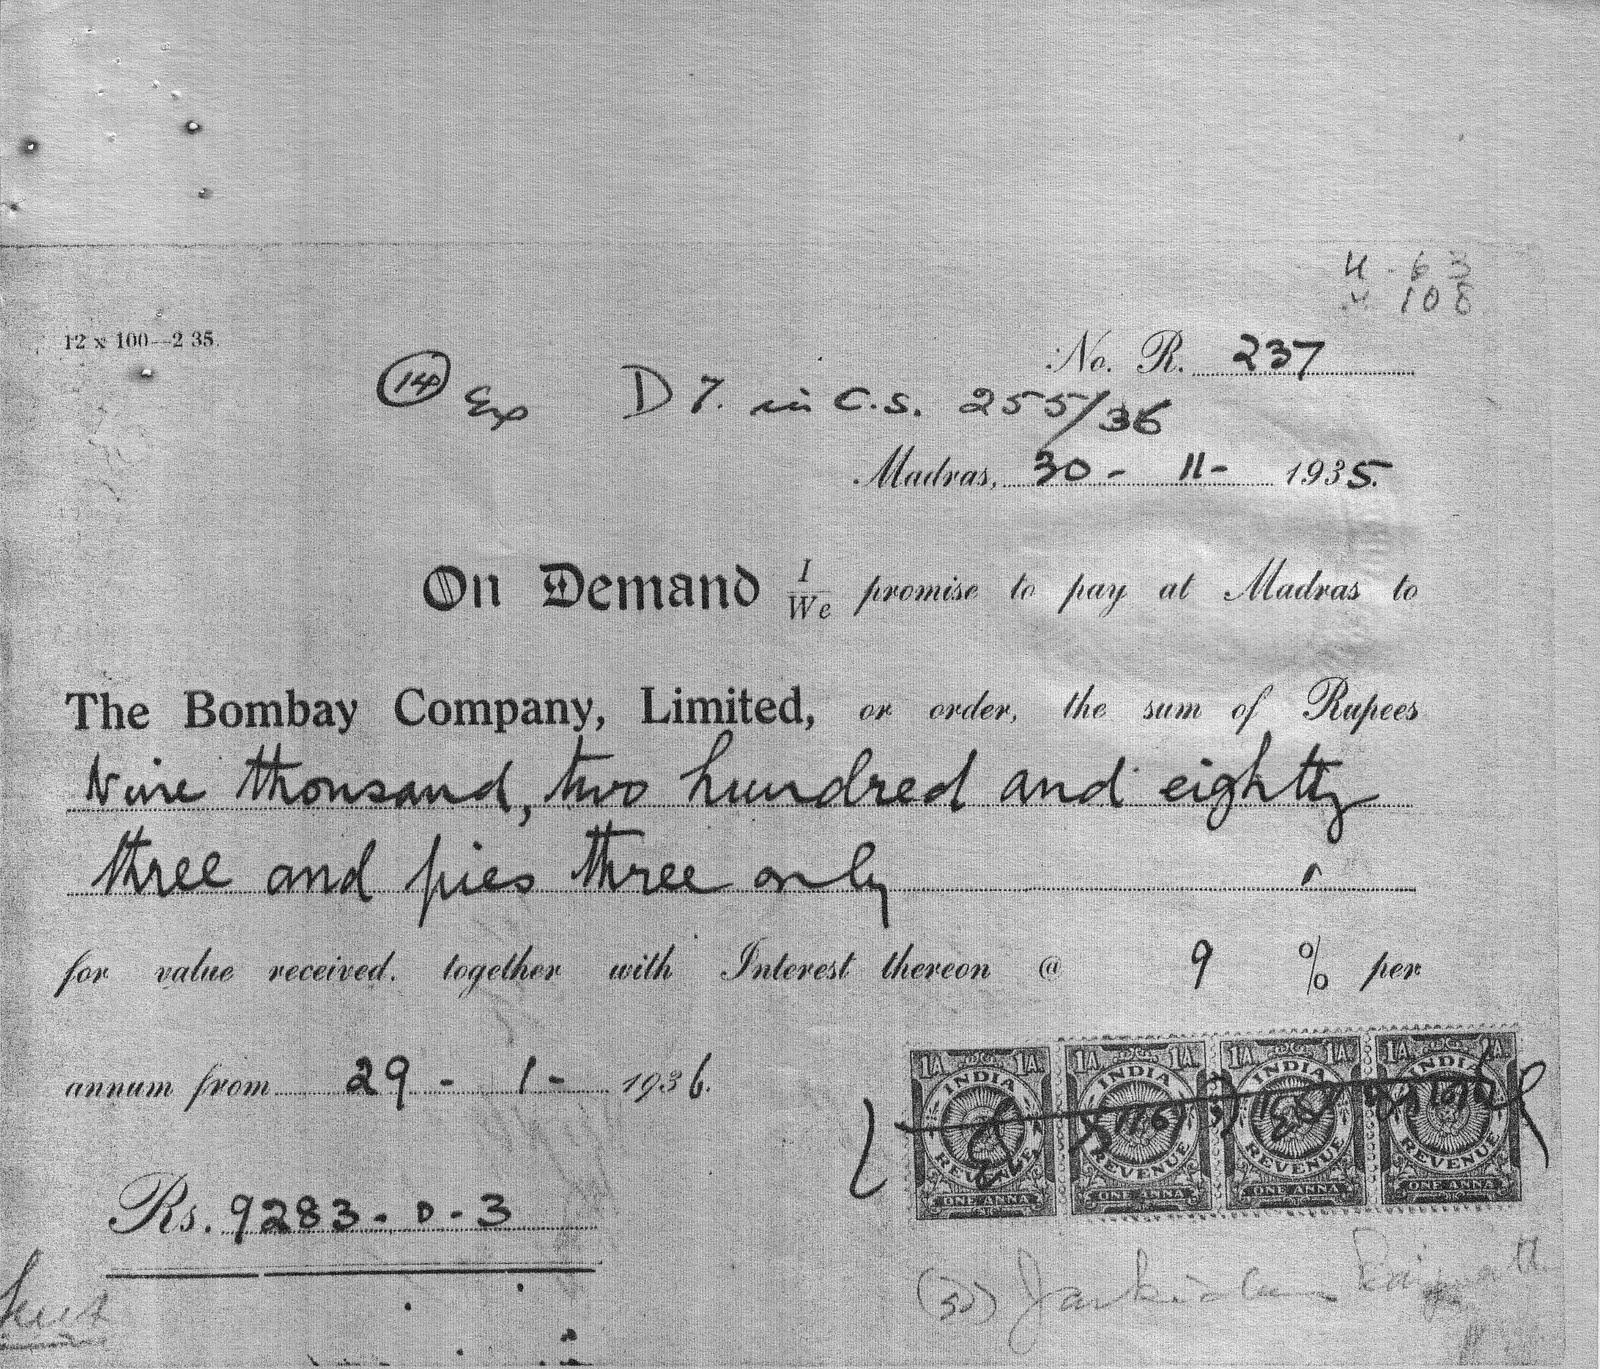 4 - 63
108
12 x 100--2 35.
No. R. 237
14 Exp D 7. in C.S. 255/36
Madras, 30 - 11 - 1935.
On Demand I/We promise to pay at Madras to
The Bombay Company, Limited, or order, the sum of Rupees
Nine thousand, two hundred and eighty
three and pies three only
for value received, together with Interest thereon @ 9 % per
annum from 29 - 1 - 1936.
1A 1A 1A 1A 1A 1A 1A 1A
INDIA INDIA INDIA INDIA
REVENUE REVENUE REVENUE REVENUE
ONE ANNA ONE ANNA ONE ANNA ONE ANNA
Rs. 9283 - 0 - 3